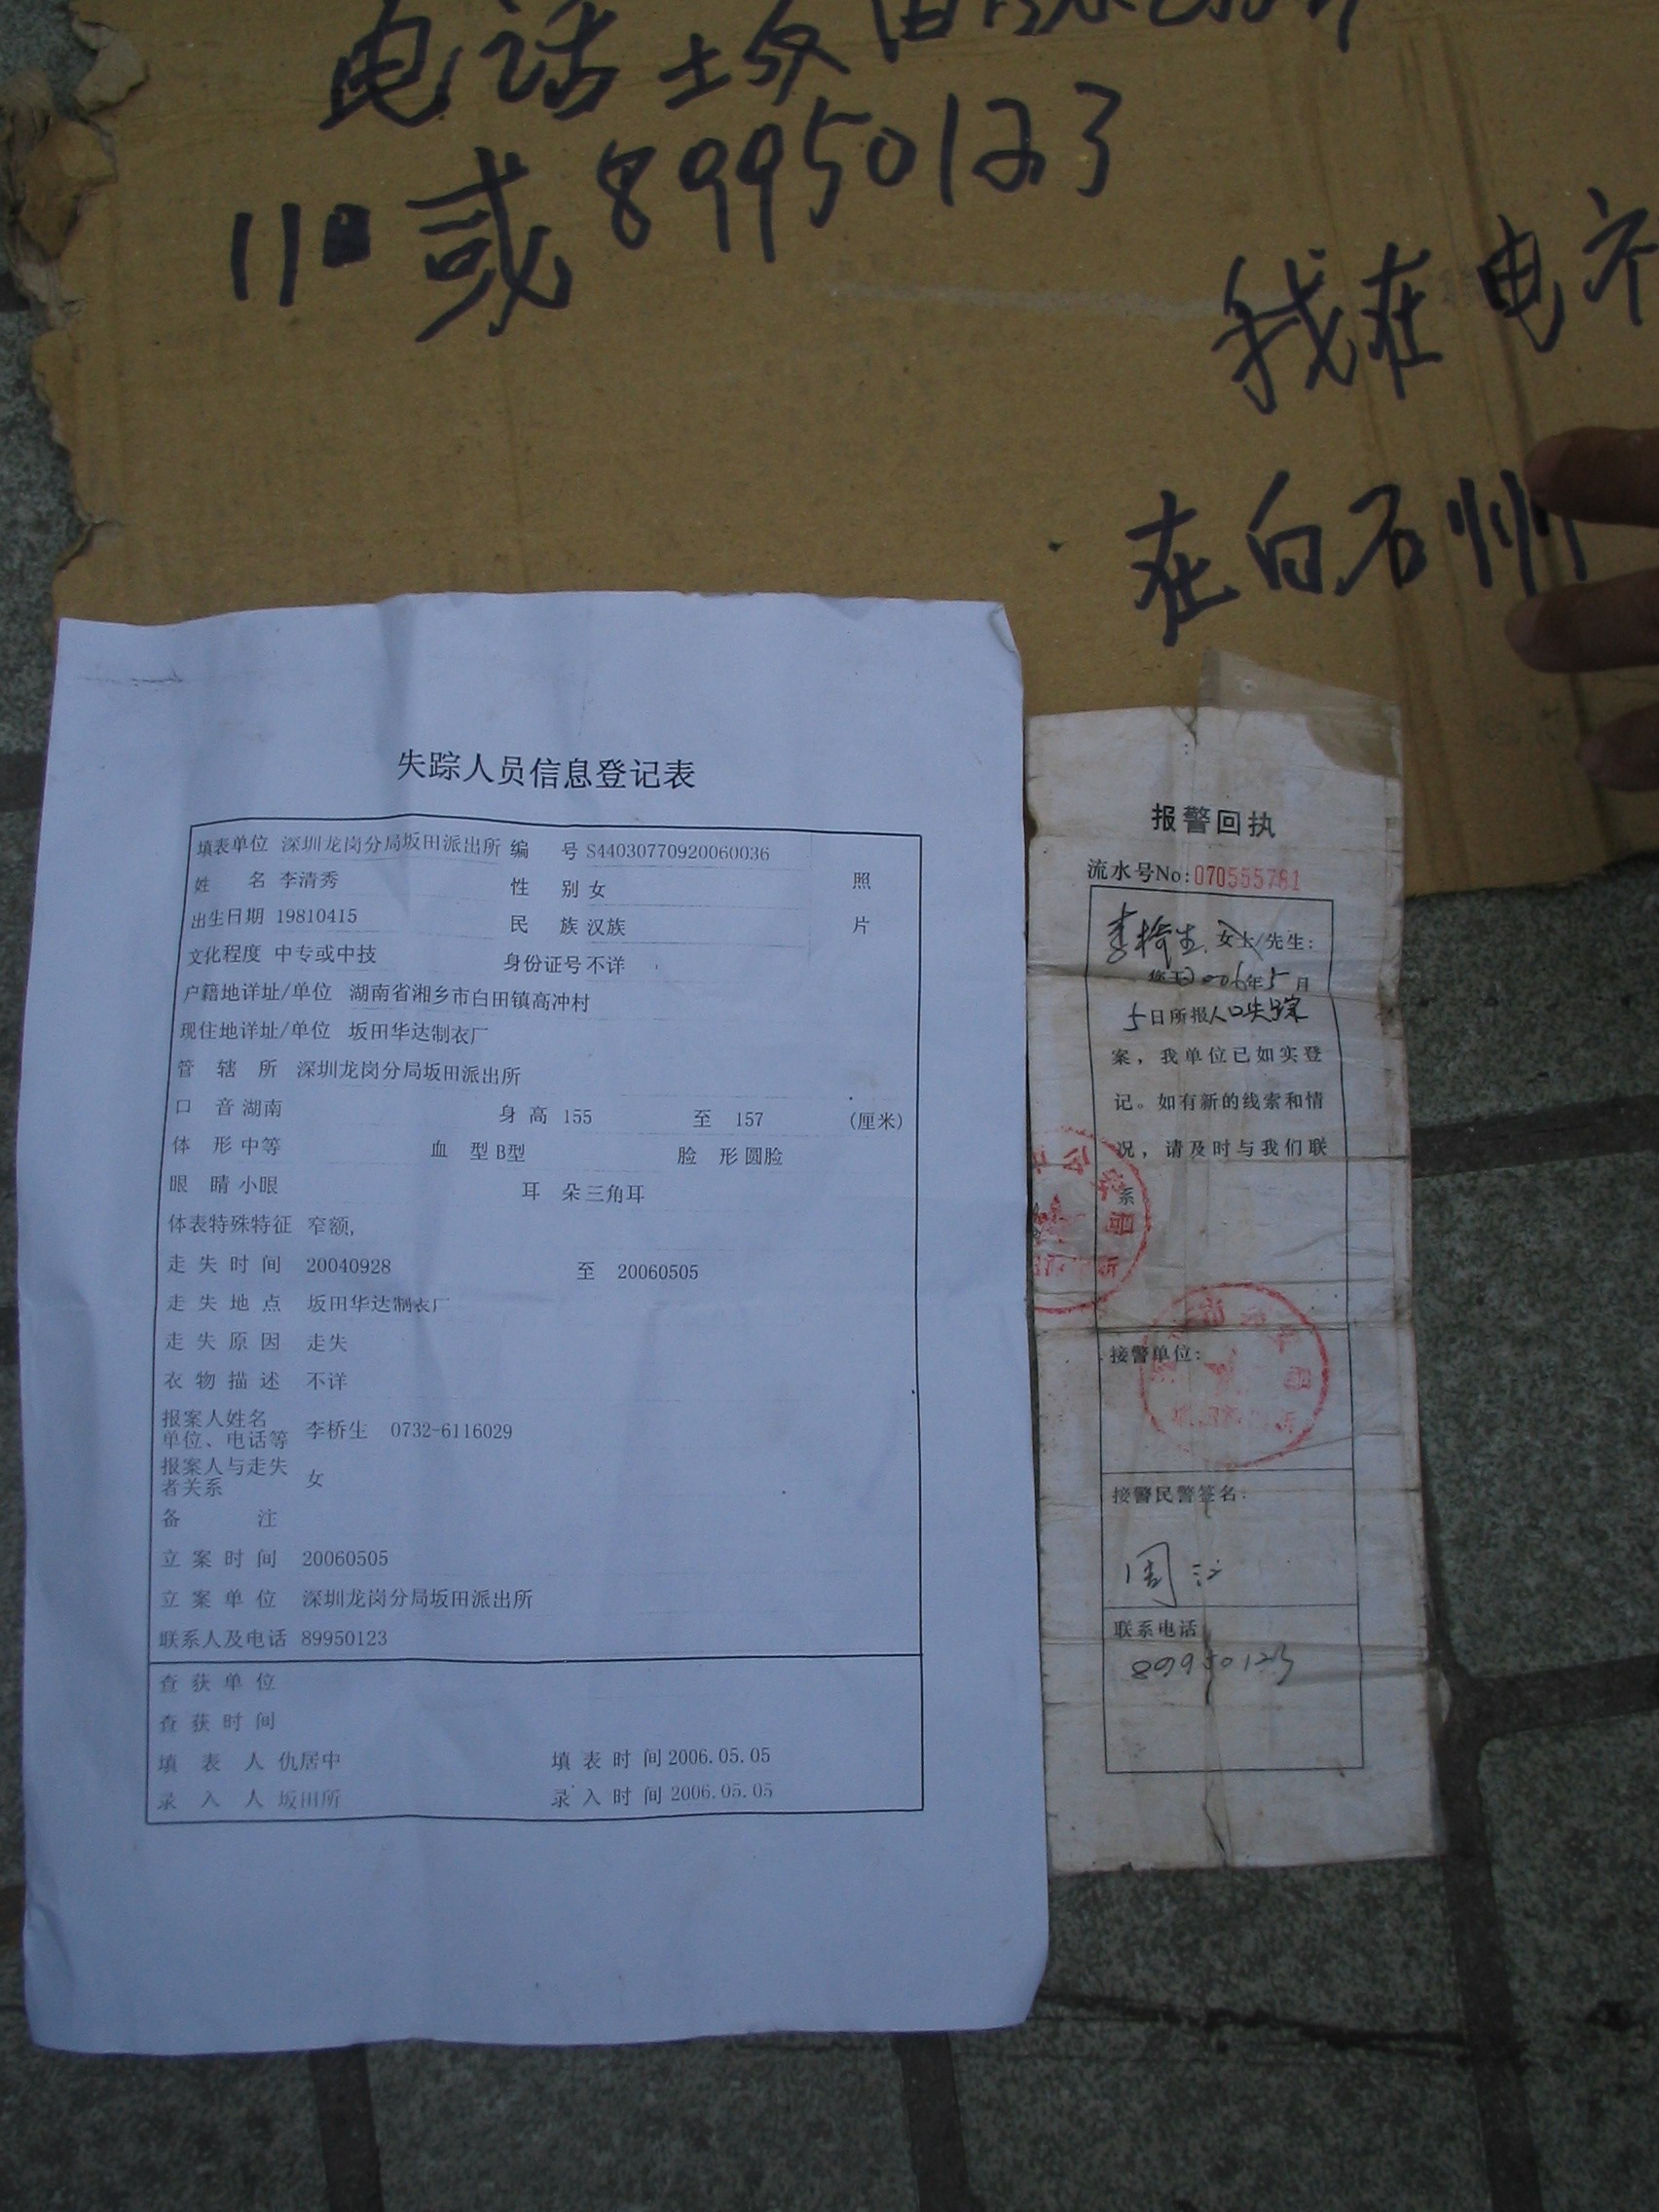 电话 坂田
110或89950123
我在电
在白石州
失踪人员信息登记表
填表单位 深圳龙岗分局坂田派出所 编 号 S44030770920060036
姓 名 李清秀 性 别 女 照
出生日期 19810415 民 族 汉族 片
文化程度 中专或中技 身份证号 不详
户籍地详址/单位 湖南省湘乡市白田镇高冲村
现住地详址/单位 坂田华达制衣厂
管 辖 所 深圳龙岗分局坂田派出所
口 音 湖南 身 高 155 至 157 (厘米)
体 形 中等 血 型 B型 脸 形 圆脸
眼 睛 小眼 耳 朵 三角耳
体表特殊特征 窄额,
走 失 时 间 20040928 至 20060505
走 失 地 点 坂田华达制衣厂
走 失 原 因 走失
衣 物 描 述 不详
报案人姓名
单位、电话等 李桥生 0732-6116029
报案人与走失
者关系 女
备 注
立 案 时 间 20060505
立 案 单 位 深圳龙岗分局坂田派出所
联系人及电话 89950123
查 获 单 位
查 获 时 间
填 表 人 仇居中 填 表 时 间 2006.05.05
录 入 人 坂田所 录 入 时 间 2006.05.05
报警回执
流水号No:070555781
李桥生 女士/先生:
您于2006年5月
5日所报人口失踪
案，我单位已如实登
记。如有新的线索和情
况，请及时与我们联
系
接警单位:
接警民警签名:
周江
联系电话
89950123